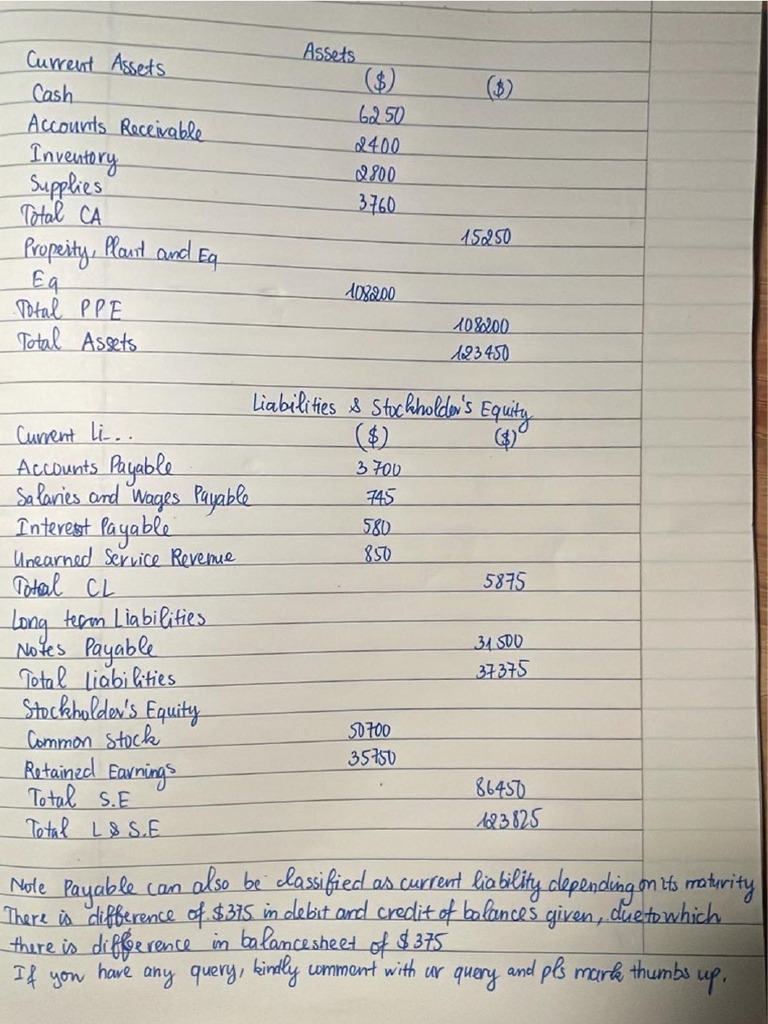 Assets
Current Assets ($) ($)
Cash 6250
Accounts Receivable 2400
Inventory 2800
Supplies 3760
Total CA 15250
Property, Plant and Eq
Eq 108200
Total PPE 108200
Total Assets 123450
Liabilities & Stockholder's Equity
Current Li... ($) ($)
Accounts Payable 3700
Salaries and Wages Payable 745
Interest Payable 580
Unearned Service Revenue 850
Total CL 5875
Long term Liabilities
Notes Payable 31500
Total Liabilities 37375
Stockholder's Equity
Common Stock 50700
Retained Earnings 35750
Total S.E 86450
Total L & S.E 123825
Note Payable can also be classified as current liability depending on its maturity
There is difference of $375 in debit and credit of balances given, due to which
there is difference in balancesheet of $375
If you have any query, kindly comment with ur query and pls mark thumbs up.